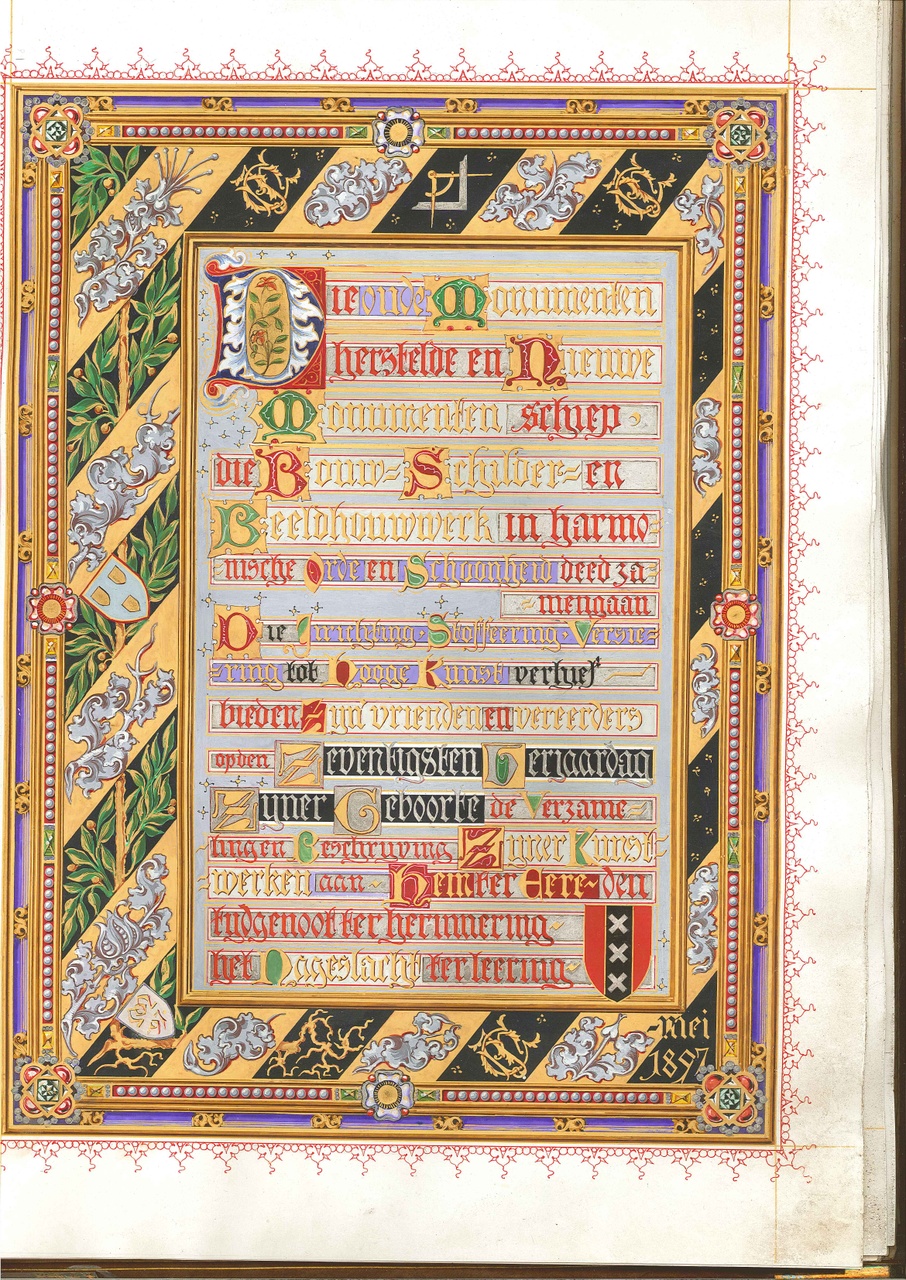 Die oude Monumenten
herstelde en Nieuwe
Monumenten schiep
die Bouw- Schilder- en
Beeldhouwwerk in harmo-
nische Orde en Schoonheid deed za-
mengaan
Die Inrichting Stoffeering Versie-
ring tot Hooge Kunst verhief
bieden Zijn vrienden en vereerders
op den Zeventigsten Verjaardag
Zijner Geboorte de Verzame-
lingen Beschrijving Zijner Kunst-
werken aan Hem ter Eere den
tijdgenoot ter herinnering
het Nageslacht ter leering
mei
1897